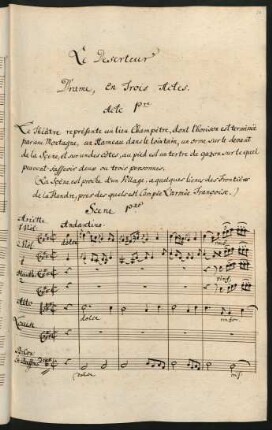 Le Deserteur
Drame, en trois Actes.
Acte 1.er
Le Théâtre représente un lieu Champêtre, dont l'horison est terminée
par une Montagne, un Hameau dans le lointain, un orme sur le devant
de la Scene, et sur un des côtés, au pied est un tertre de gazon sur le quel
peuvent s'asseoir deux ou trois personnes.
(La Scene est proche d'un Village, a quelques lieues des Frontieres
de la Flandre, près des quels est campée l'armée Françoise.)
Scene 1.ere
Ariette
Andantino
dolce
Alto
dolce
Louise
dolce